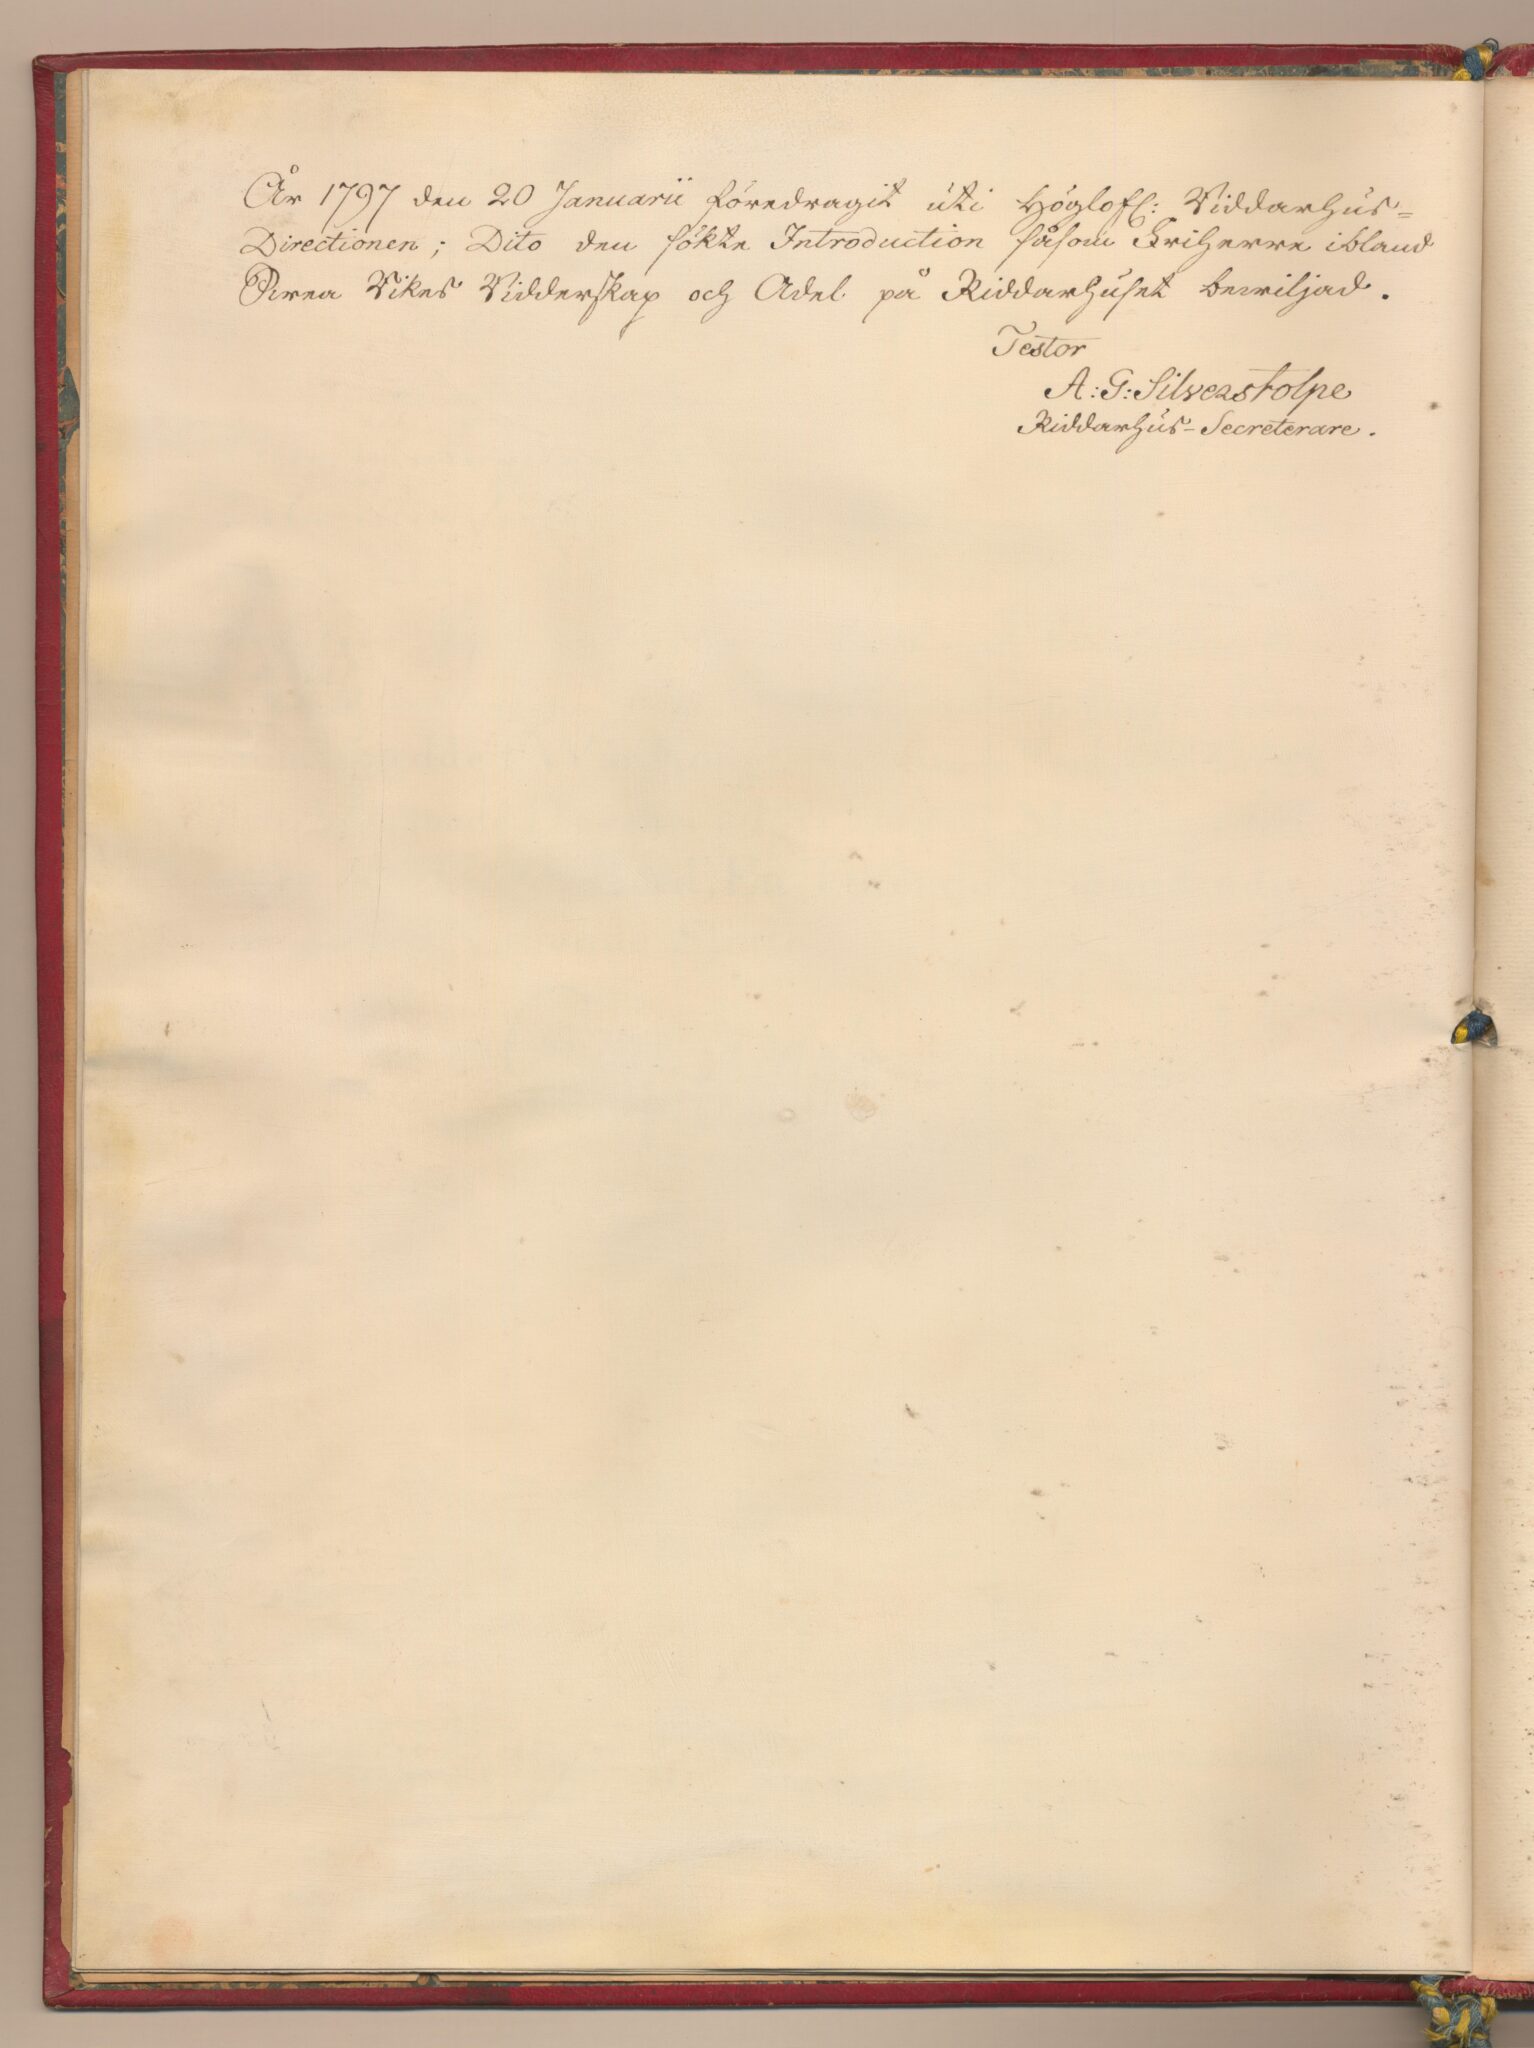 År 1797 den 20 Januarii föredragit uti Höglofl: Riddarhus-
Directionen; Dito den sökte Introduction såsom Friherre ibland
Svea Rikes Ridderskap och Adel på Riddarhuset bewiljad.
Testor
A: G: Silverstolpe
Riddarhus-Secreterare.